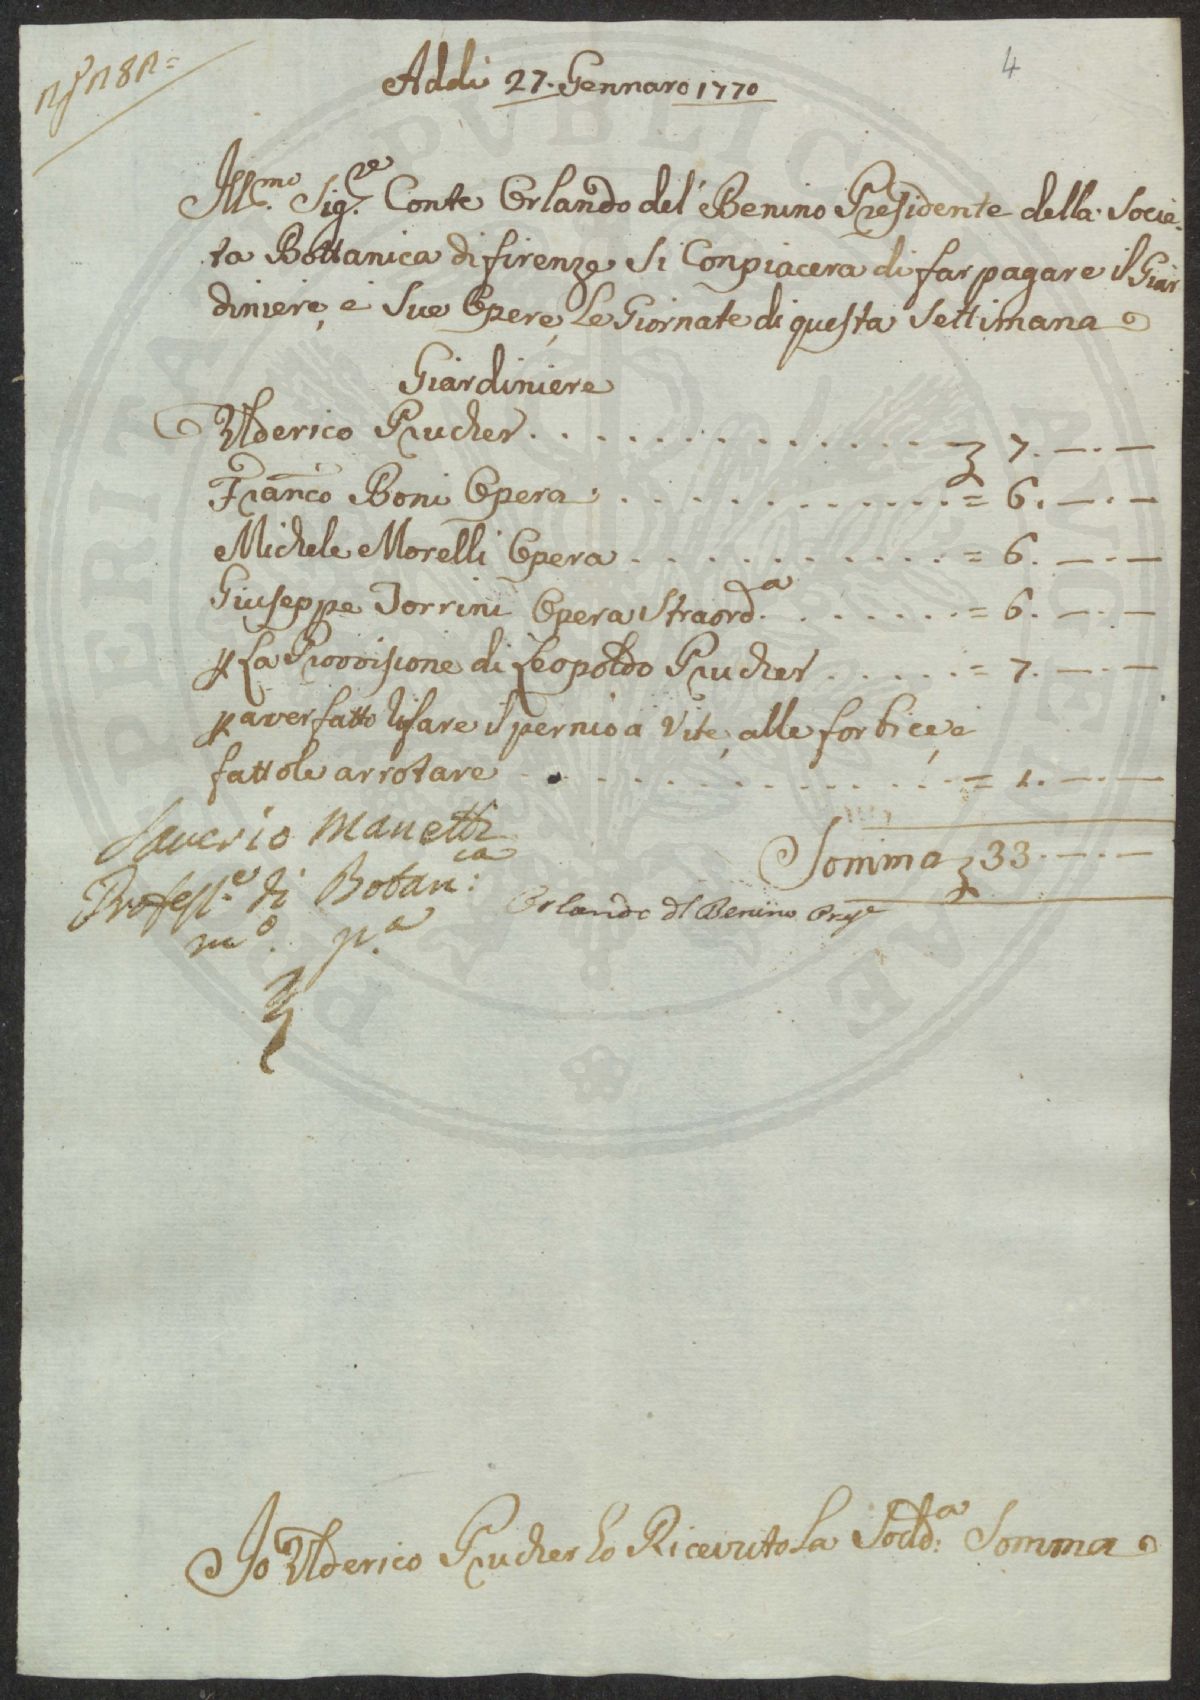 4
Addi 27. Gennaro 1770
Ill.mo Sig.re Conte Orlando del Benino Presidente della Socie-
ta Bottanica di firenze si Conpiacera di far pagare il Giar
diniere, e sue Opere, Le Giornate di questa settimana
Giardiniere
Ulderico Prucher . . . . . . . . . . . . . 7. — . —
Franco Boni Opera . . . . . . . . . . . = 6. — . —
Michele Morelli Opera . . . . . . . . . . = 6. — . —
Giuseppe Torrini Opera Straord.a . . . . . . = 6. — . —
p La Provisione di Leopoldo Prucher . . . . . = 7. — . —
p aver fatto rifare il pernio a Vite, alle forbice, e
fattole arrotare . . . . . . . . . . . . = 1. — . —
Somma 33. — . —
Saverio Manetti
Profess.e di Botan:ca
m.o p.a
Orlando del Benino
Io Ulderico Prucher ho Ricevuto La Sodd:a Somma
PERITA PVBLICA AVCE